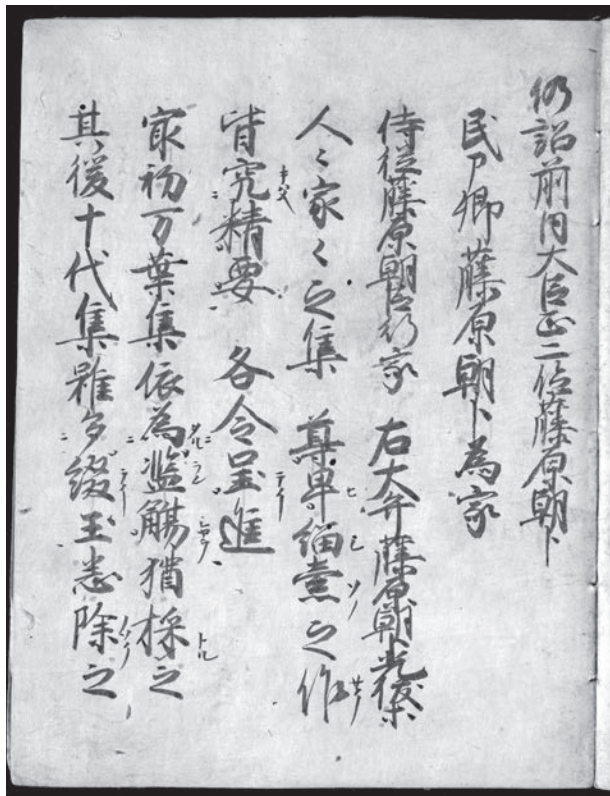 仍詔前内大臣正二位藤原朝卜
民卩卿藤原朝卜為家
侍従藤原朝臣行家 右大弁藤原朝臣光俊等
人〻家〻之集 尊卑緇素之作
皆究精要 各令呈進
㝡初万葉集依為濫觴猶採之
其後十代集雖多綴玉悉除之